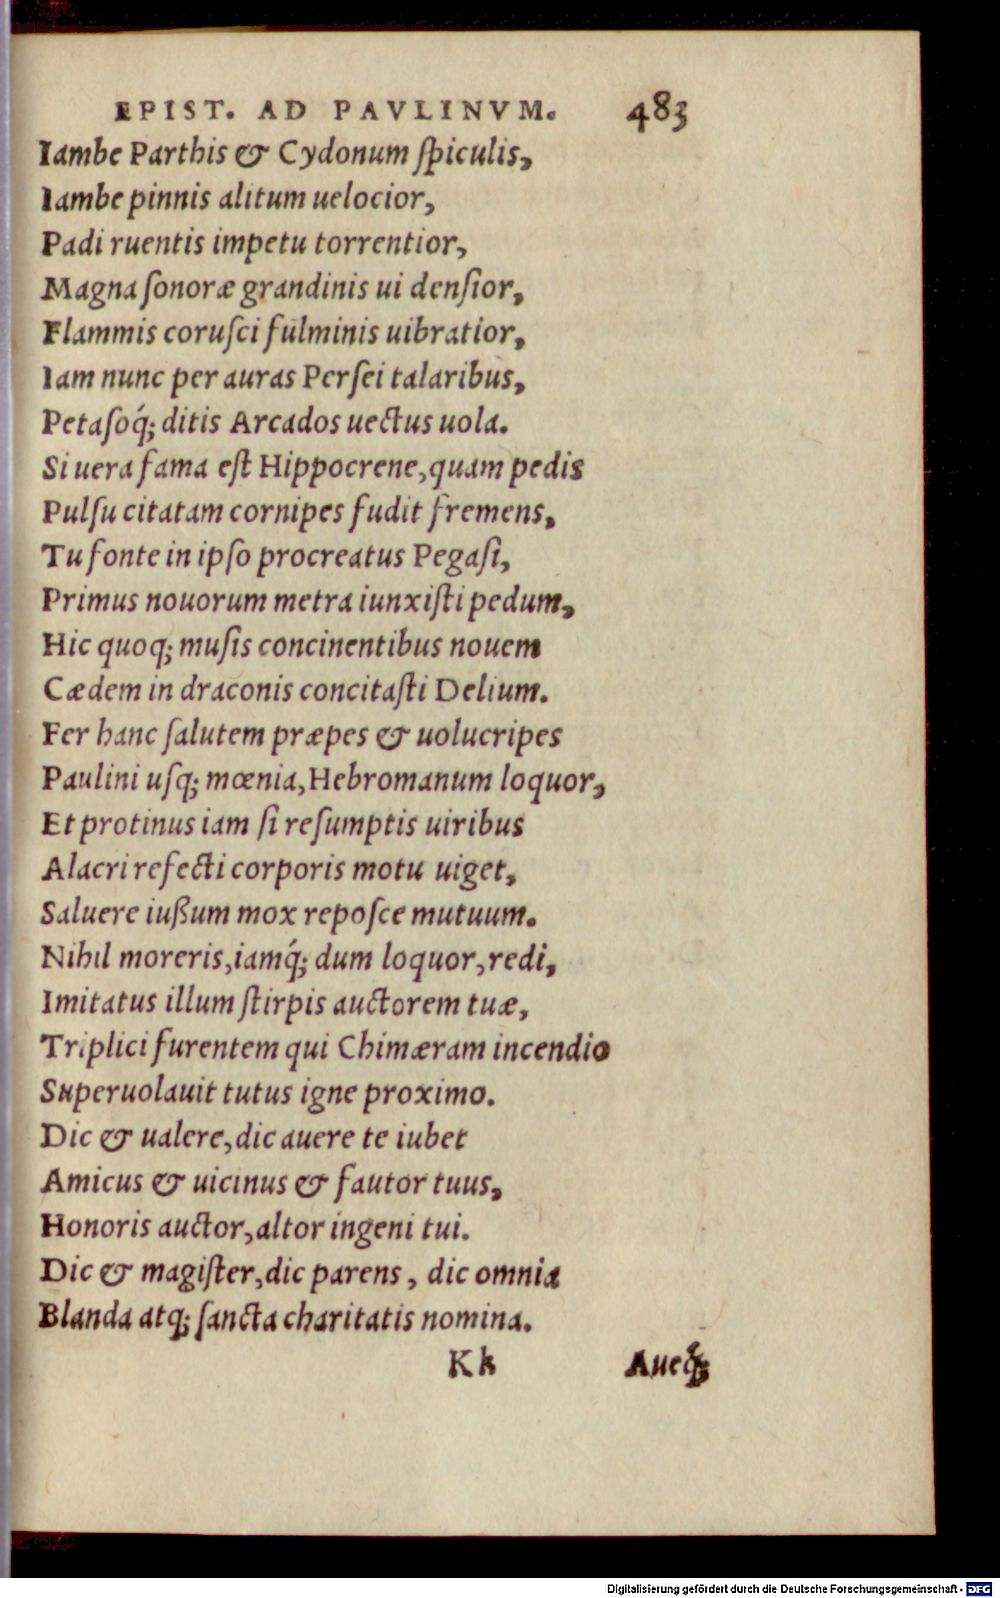 EPIST. AD PAVLINVM. 483
Iambe Parthis & Cydonum ſpiculis,
Iambe pinnis alitum uelocior,
Padi ruentis impetu torrentior,
Magna ſonoræ grandinis ui denſior,
Flammis coruſci fulminis uibratior,
Iam nunc per auras Perſei talaribus,
Petaſoq́; ditis Arcados uectus uola.
Si uera fama eſt Hippocrene, quam pedis
Pulſu citatam cornipes fudit fremens,
Tu fonte in ipſo procreatus Pegaſi,
Primus nouorum metra iunxiſti pedum,
Hic quoq; muſis concinentibus nouem
Cædem in draconis concitaſti Delium.
Fer hanc ſalutem præpes & uolucripes
Paulini uſq; mœnia, Hebromanum loquor,
Et protinus iam ſi reſumptis uiribus
Alacri refecti corporis motu uiget,
Saluere iußum mox repoſce mutuum.
Nihil moreris, iamq́; dum loquor, redi,
Imitatus illum ſtirpis auctorem tuæ,
Triplici furentem qui Chimæram incendio
Superuolauit tutus igne proximo.
Dic & ualere, dic auere te iubet
Amicus & uicinus & fautor tuus,
Honoris auctor, altor ingeni tui.
Dic & magiſter, dic parens, dic omnia
Blanda atq; ſancta charitatis nomina.
Kk Aueq́;
Digitalisierung gefördert durch die Deutsche Forschungsgemeinschaft - DFG